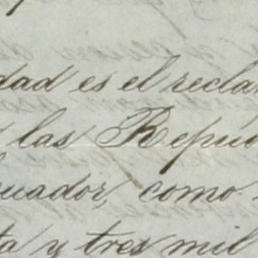 dad es el recla
las Repú
uador, como
ta y tres mil